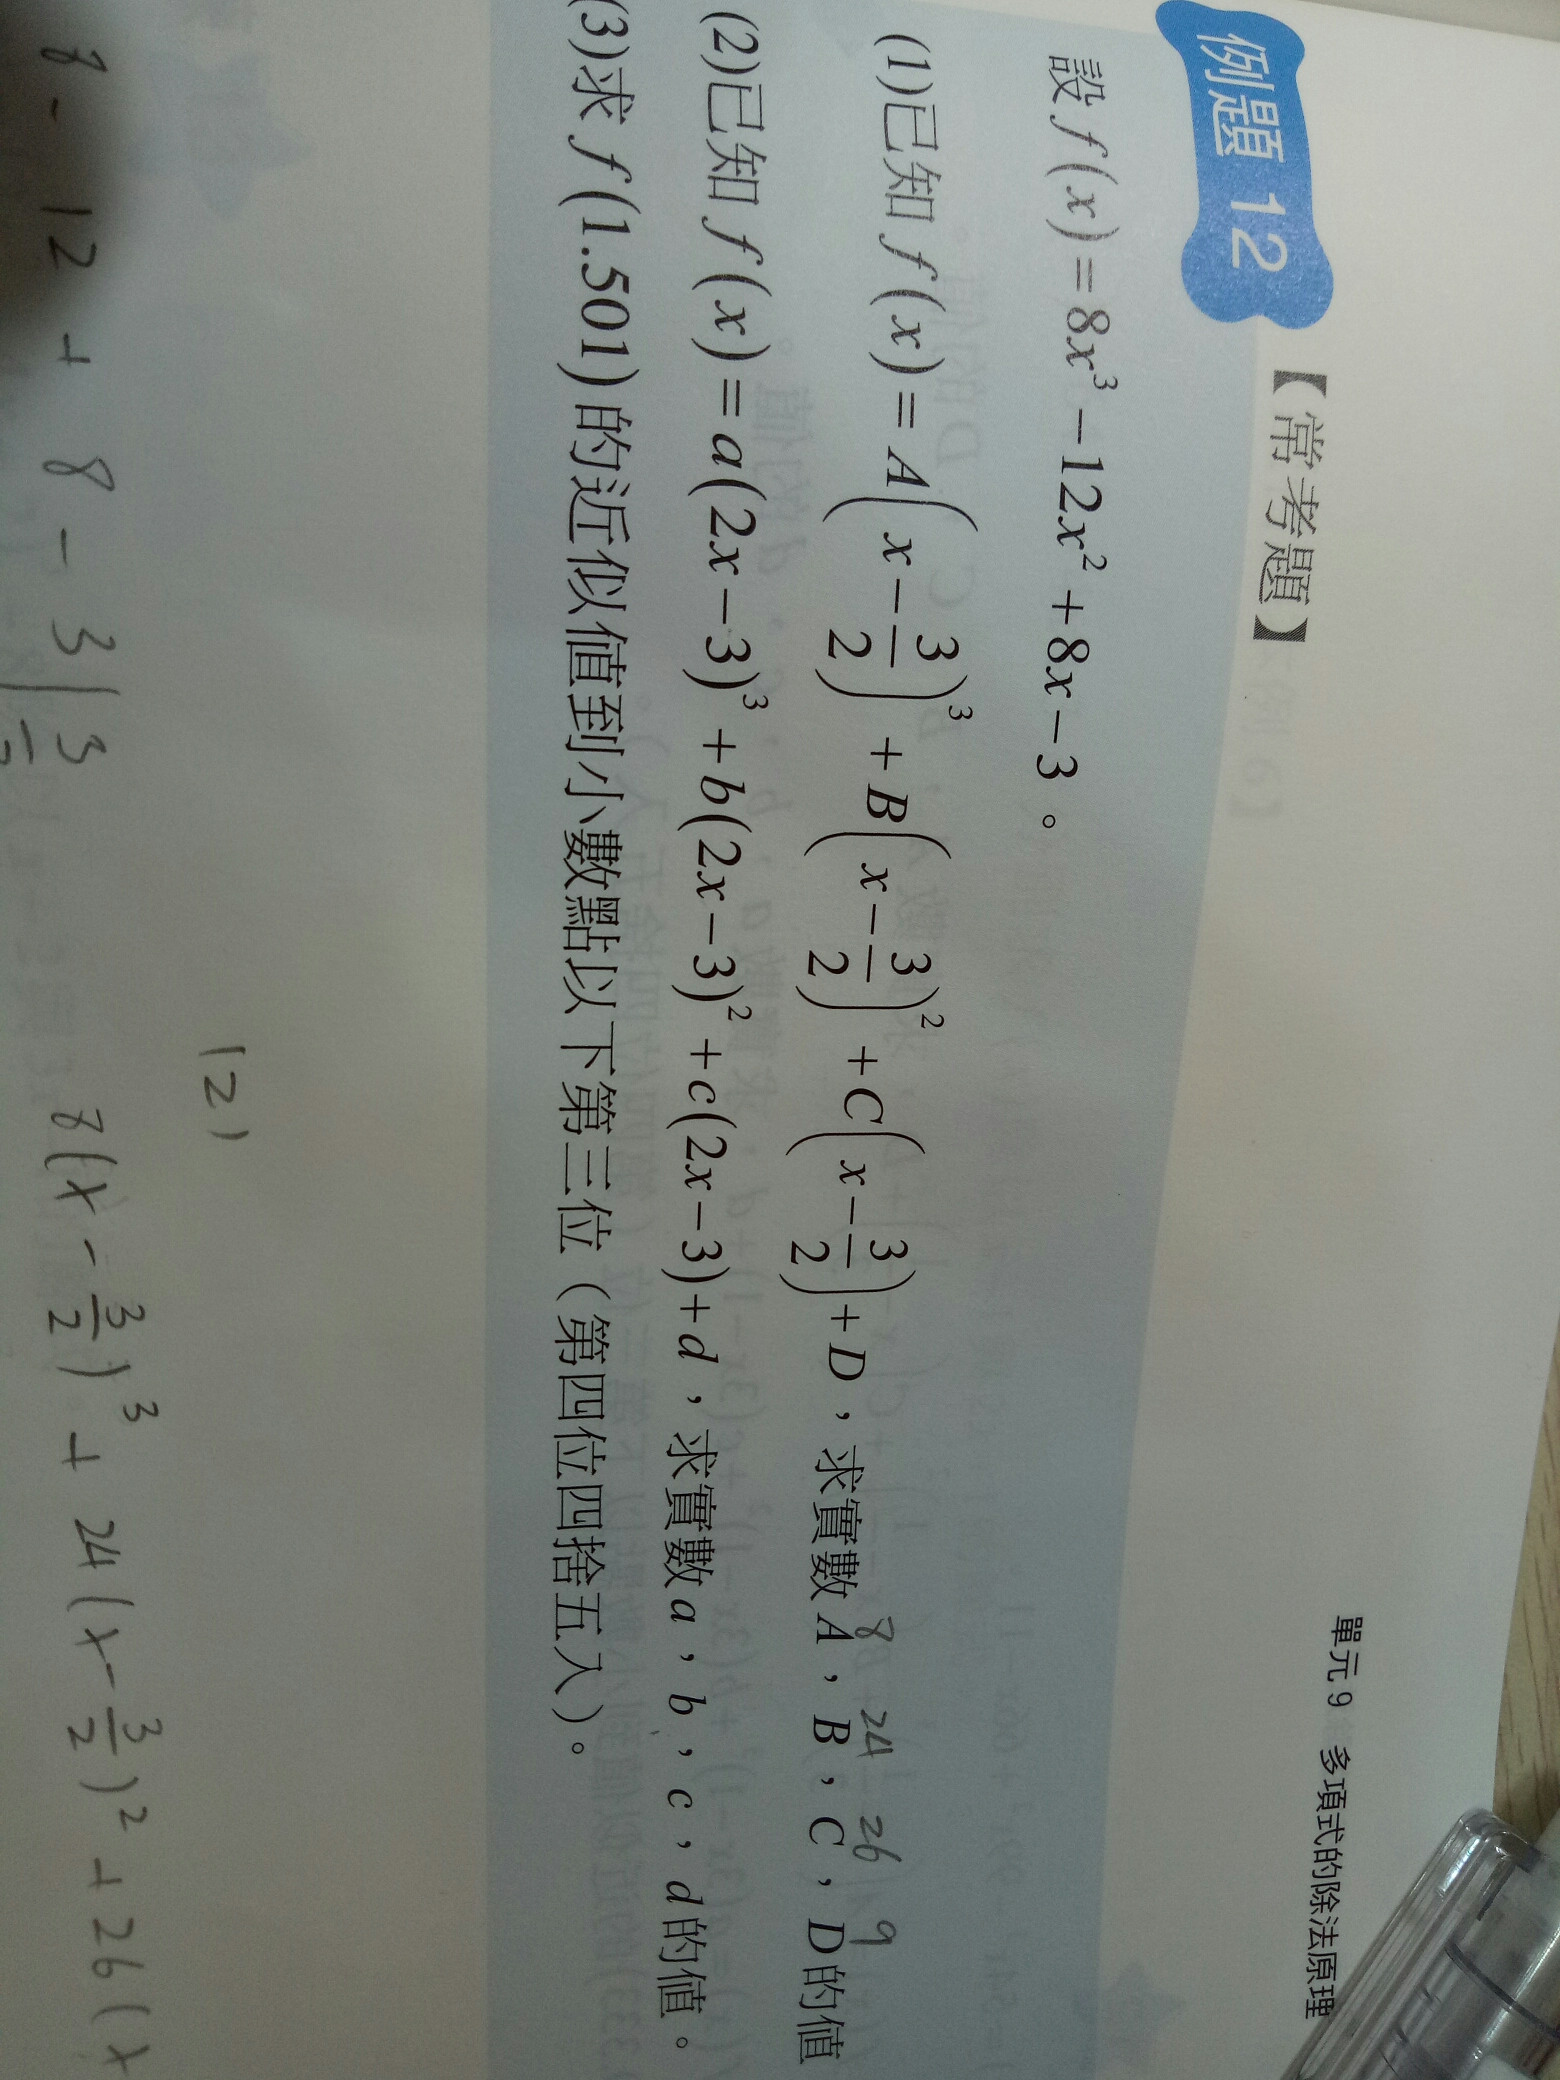 單元 9 多項式的除法原理
例題 12 【常考題】
設 f(x)=8x³−12x²+8x−3。
(1)已知 f(x)=A(x−3/2)³+B(x−3/2)²+C(x−3/2)+D,求實數 A,B,C,D的值
8 24 26 9
(2)已知 f(x)=a(2x−3)³+b(2x−3)²+c(2x−3)+d,求實數 a,b,c,d 的值。
(3)求 f(1.501)的近似值到小數點以下第三位(第四位四捨五入)。
(2)
8 − 12 + 8 − 3 | 3/2
8(x−3/2)³ + 24(x−3/2)² + 26(x